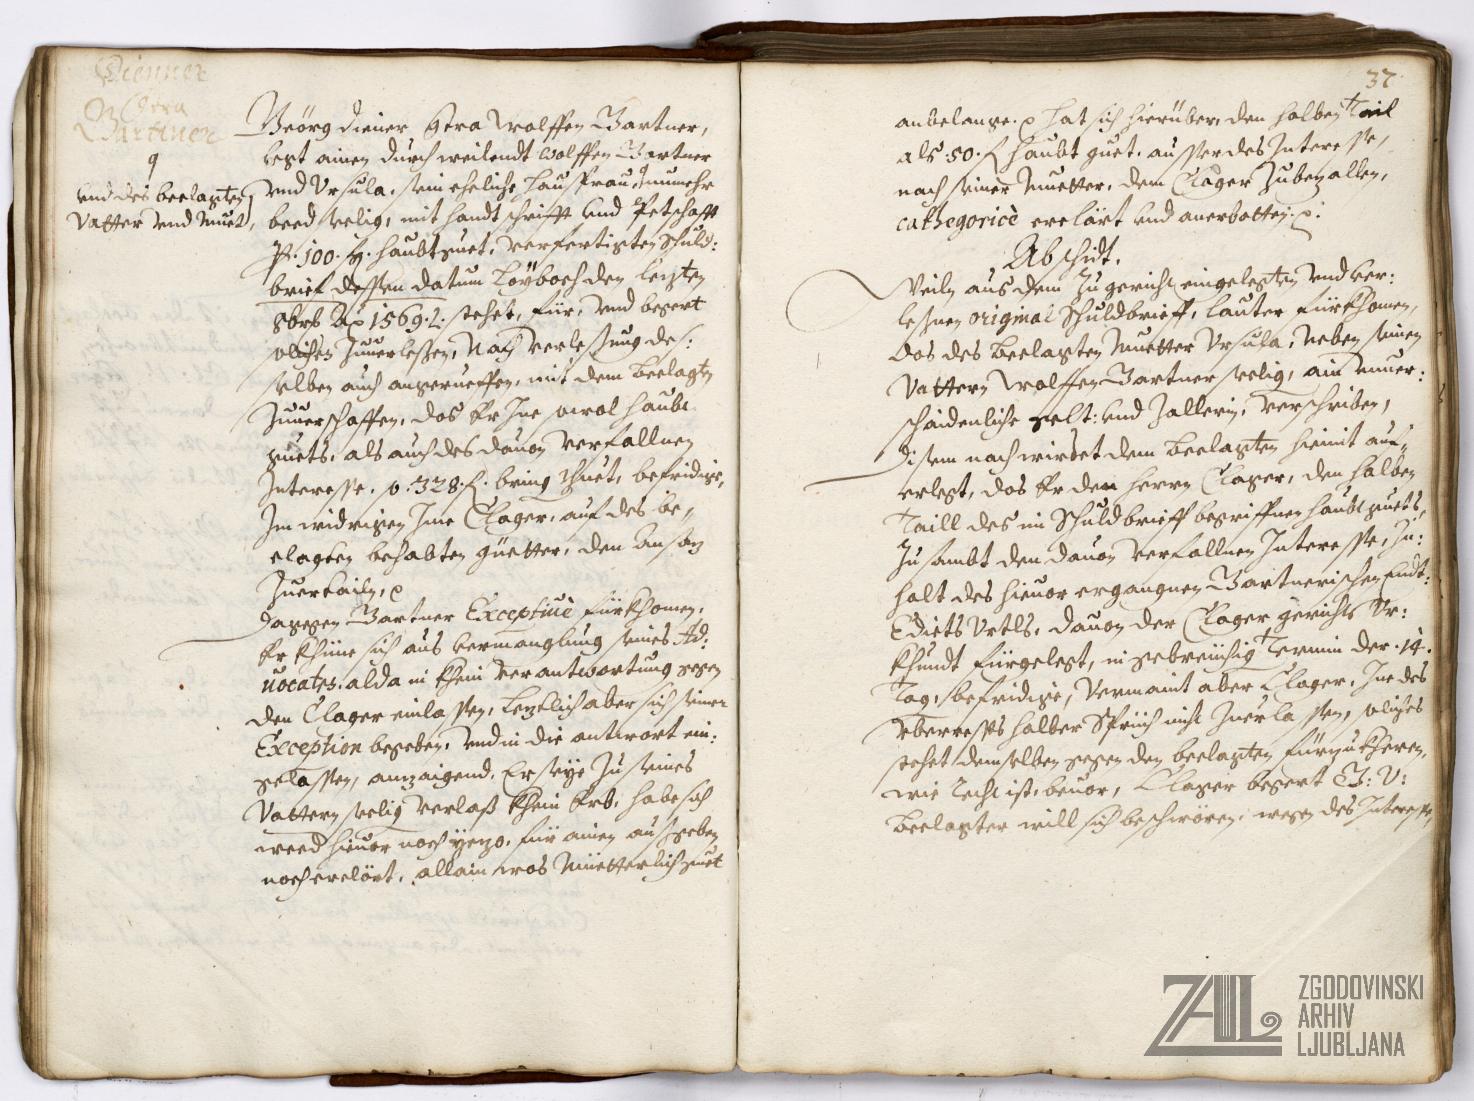 Diener
Cera
Gartner
und des beelagten
Vatter und Muet.
Geörg diener Cera Wolffen Gartner,
legt ainen durch weilendt Wolffen Gartner
und Ursula, sein eheliche Haussfrau, nunmehr
beed seelig, mit handtschrifft und Petschafft
P. 100. fl. haubtguet, verfertigten Schuld:
brief dessen datum Laybach den lezten
8bris Ao 1569. stehet, für, und begert
solichen zuuerlesen, Nach verlesung des:
selben auch angerueffen, mit dem Beelagten
zuuerschaffen, das Er Ine sowol haubt
guets, als auch des dauon verfallnen
Interesse, p. 328. f. bring thuet, befridige,
Im widrigen Ime Clager, auf des be,,
elagten behabten güetter, den Ansaz
zuertailn, p
Dagegen Gartner Exceptiuè fürkhomen,
Er khüne sich aus ermanglung seines Ad:
uocaten, alda in khein verantwortung gegen
den Clager einlassen, Leztlich aber sich seiner
Exception begeben, und in die antwort ein:
gelassen, anzaigend, Er seye zu seines
Vattern seelig verlaß khein Erb, habe sich
weed hieuor noch yezo, für ainen ausgeben
noch erclärt, allain was Müetterlich guet
37.
anbelange. p hat sich hierüber, den halben Tail
als 50. f haubt guet, ausser des Interesse,
nach seiner Muetter, dem Clager zubezallen,
cathegoricè erclärt und anerbotten. p:
Abschidt.
Weiln aus dem zu gericht eingelegten und ver:
lesnen original Schuldbrieff, lauter fürkhomen,
das des Beelagten Muetter Ursula, neben seinen
Vattern Wolffen Gartner seelig, ain unuer:
schaidenliche gelt: und zallerin, verschriben,
disem nach wirdet dem Beelagten hiemit auf,,
erlegt, das Er den herrn Clager, den halben
Taill des im Schuldbrieff begriffnen haubtguets,
zu sambt den dauon verfallnen Interesse, In:
halt des hieuor ergangnen Gartnerischen Endt:
Edicts Urtls, dauon der Clager gerichts Ur:
khundt fürgelegt, in gebreüchig Termin der 14.
Tag, befridige, Vermaint aber Clager, Ine des
uberrests halber Sprüch nicht zuerlassen, soliches
stehet demselben gegen den beelagten fürzukheren,
wie Recht ist, beuor, Clager begert T: U:
Beelagter will sich beschwören, wegen des Interesse,
ZAL
ZGODOVINSKI
ARHIV
LJUBLJANA